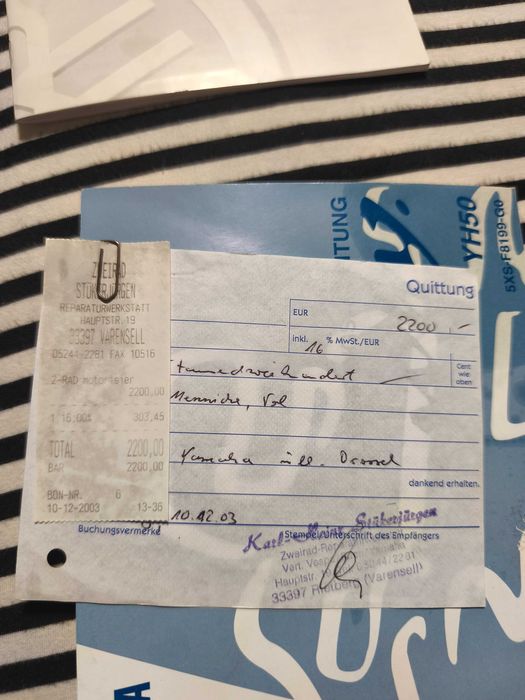 ITUNG
YH50
5XS-F8199-G0
ZWEIRAD
STÜKERJÜRGEN
REPARATURWERKSTATT
HAUPTSTR. 19
33397 VARENSELL
05244-2281 FAX 10516
2-RAD motorister
2200.00
1 16.00% 303,45
TOTAL 2200,00
BAR 2200.00
BON-NR. 6
10-12-2003 13-36
Quittung
EUR 2200,-
inkl. 16 % MwSt./EUR
Cent
wie
oben
Yamaha
dankend erhalten.
10.12.03
Buchungsvermerke
Stempel/Unterschrift des Empfängers
Karl-Heinz Stükerjürgen
Hauptstr. 19 05244/2281
33397 Rietberg (Varensell)